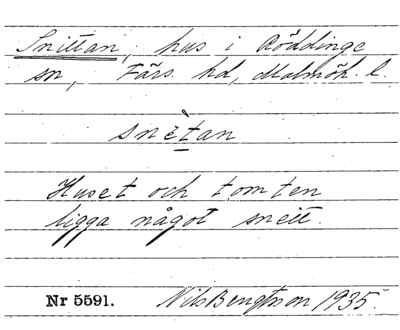 Snittan, hus i Röddinge
sn, Färs hd, Malmöh. l.
snètan
Huset och tomten
ligga något snett.
Nr 5591. Nils Bengtsson 1935